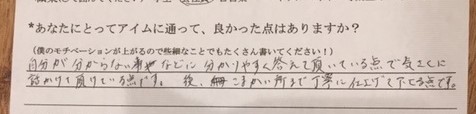 *あなたにとってアイムに通って、良かった点はありますか？
(僕のモチベーションが上がるので些細なことでもたくさん書いてください！)
自分が分からない事などに分かりやすく答えて頂いている点で気さくに
話かけて頂けている点です。後、こまかい所まで丁寧に仕上げて下さる点です。